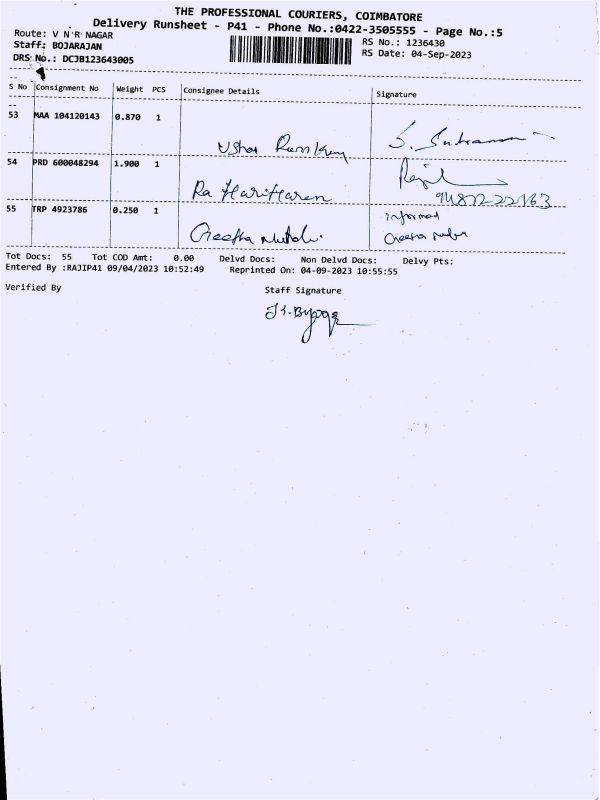 THE PROFESSIONAL COURIERS, COIMBATORE
Delivery Runsheet - P41 - Phone No.:0422-3505555 - Page No.:5
Route: V N R NAGAR
RS No.: 1236430
Staff: BOJARAJAN
RS Date: 04-Sep-2023
DRS No.: DCJB123643005
S No Consignment No Weight PCS Consignee Details Signature
53 MAA 104120143 0.870 1
54 PRD 600048294 1.900 1
Ra HariHaran
55 TRP 4923786 0.250 1
informed
Geetha
Tot Docs: 55 Tot COD Amt: 0.00 Delvd Docs: Non Delvd Docs: Delvy Pts:
Entered By :RAJIP41 09/04/2023 10:52:49 Reprinted On: 04-09-2023 10:55:55
Verified By Staff Signature